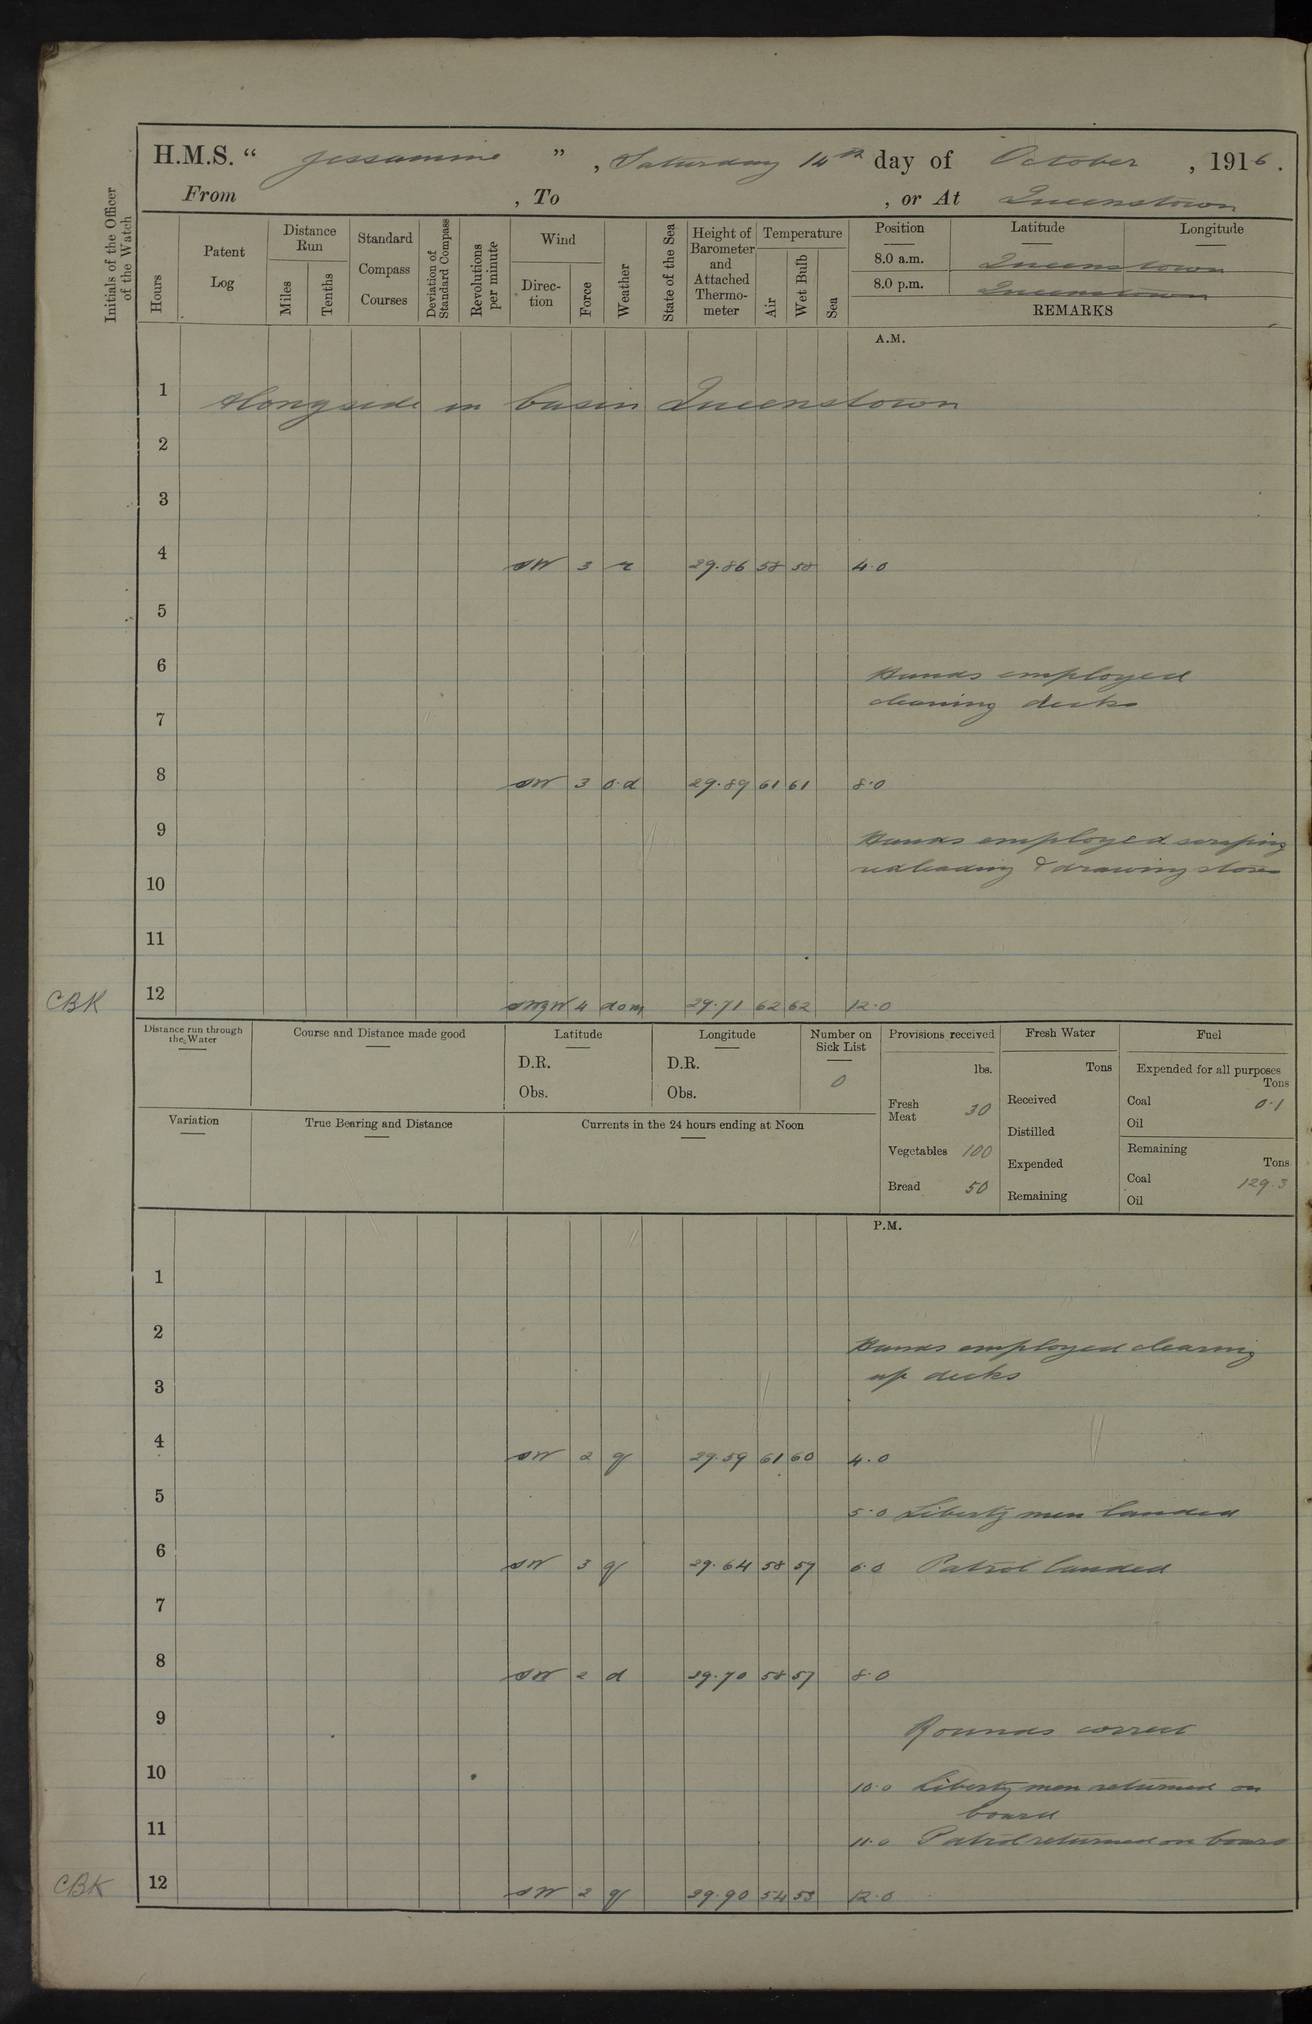 H.M.S. “ Jessamine ” , Saturday 14th day of October , 1916.
From , To , or At Queenstown
Initials of the Officer of the Watch
Hours
Patent Log
Distance Run
Miles
Tenths
Standard Compass Courses
Deviation of Standard Compass
Revolutions per minute
Wind
Direction
Force
Weather
State of the Sea
Height of Barometer and Attached Thermometer
Temperature
Air
Wet Bulb
Sea
Position Latitude Longitude
8.0 a.m. Queenstown
8.0 p.m. Queenstown
REMARKS
A.M.
1 Alongside in basin Queenstown
2
3
4 SW 3 r 29.86 58 58 4.0
5
6 Hands employed
cleaning decks
7
8 SW 3 o.d 29.89 61 61 8.0
9 Hands employed scraping
redleading & drawing stores
10
11
CBK 12 4 29.71 62 62 12.0
Distance run through the Water
Course and Distance made good
Latitude
D.R.
Obs.
Longitude
D.R.
Obs.
Number on Sick List
0
Variation
True Bearing and Distance
Currents in the 24 hours ending at Noon
Provisions received
lbs.
Fresh Meat 30
Vegetables 100
Bread 50
Fresh Water
Tons
Received
Distilled
Expended
Remaining
Fuel
Expended for all purposes
Tons
Coal 0.1
Oil
Remaining
Tons
Coal 129.3
Oil
P.M.
1
2 Hands employed clearing
up decks
3
4 SW 2 g 29.59 61 60 4.0
5 5.0 Liberty men landed
6 SW 3 g 29.64 58 57 6.0 Patrol landed
7
8 SW 2 d 29.70 58 57 8.0
9 Rounds correct
10 10.0 Liberty men returned on
board
11 11.0 Patrol returned on board
CBK 12 SW 2 g 29.90 54 53 12.0